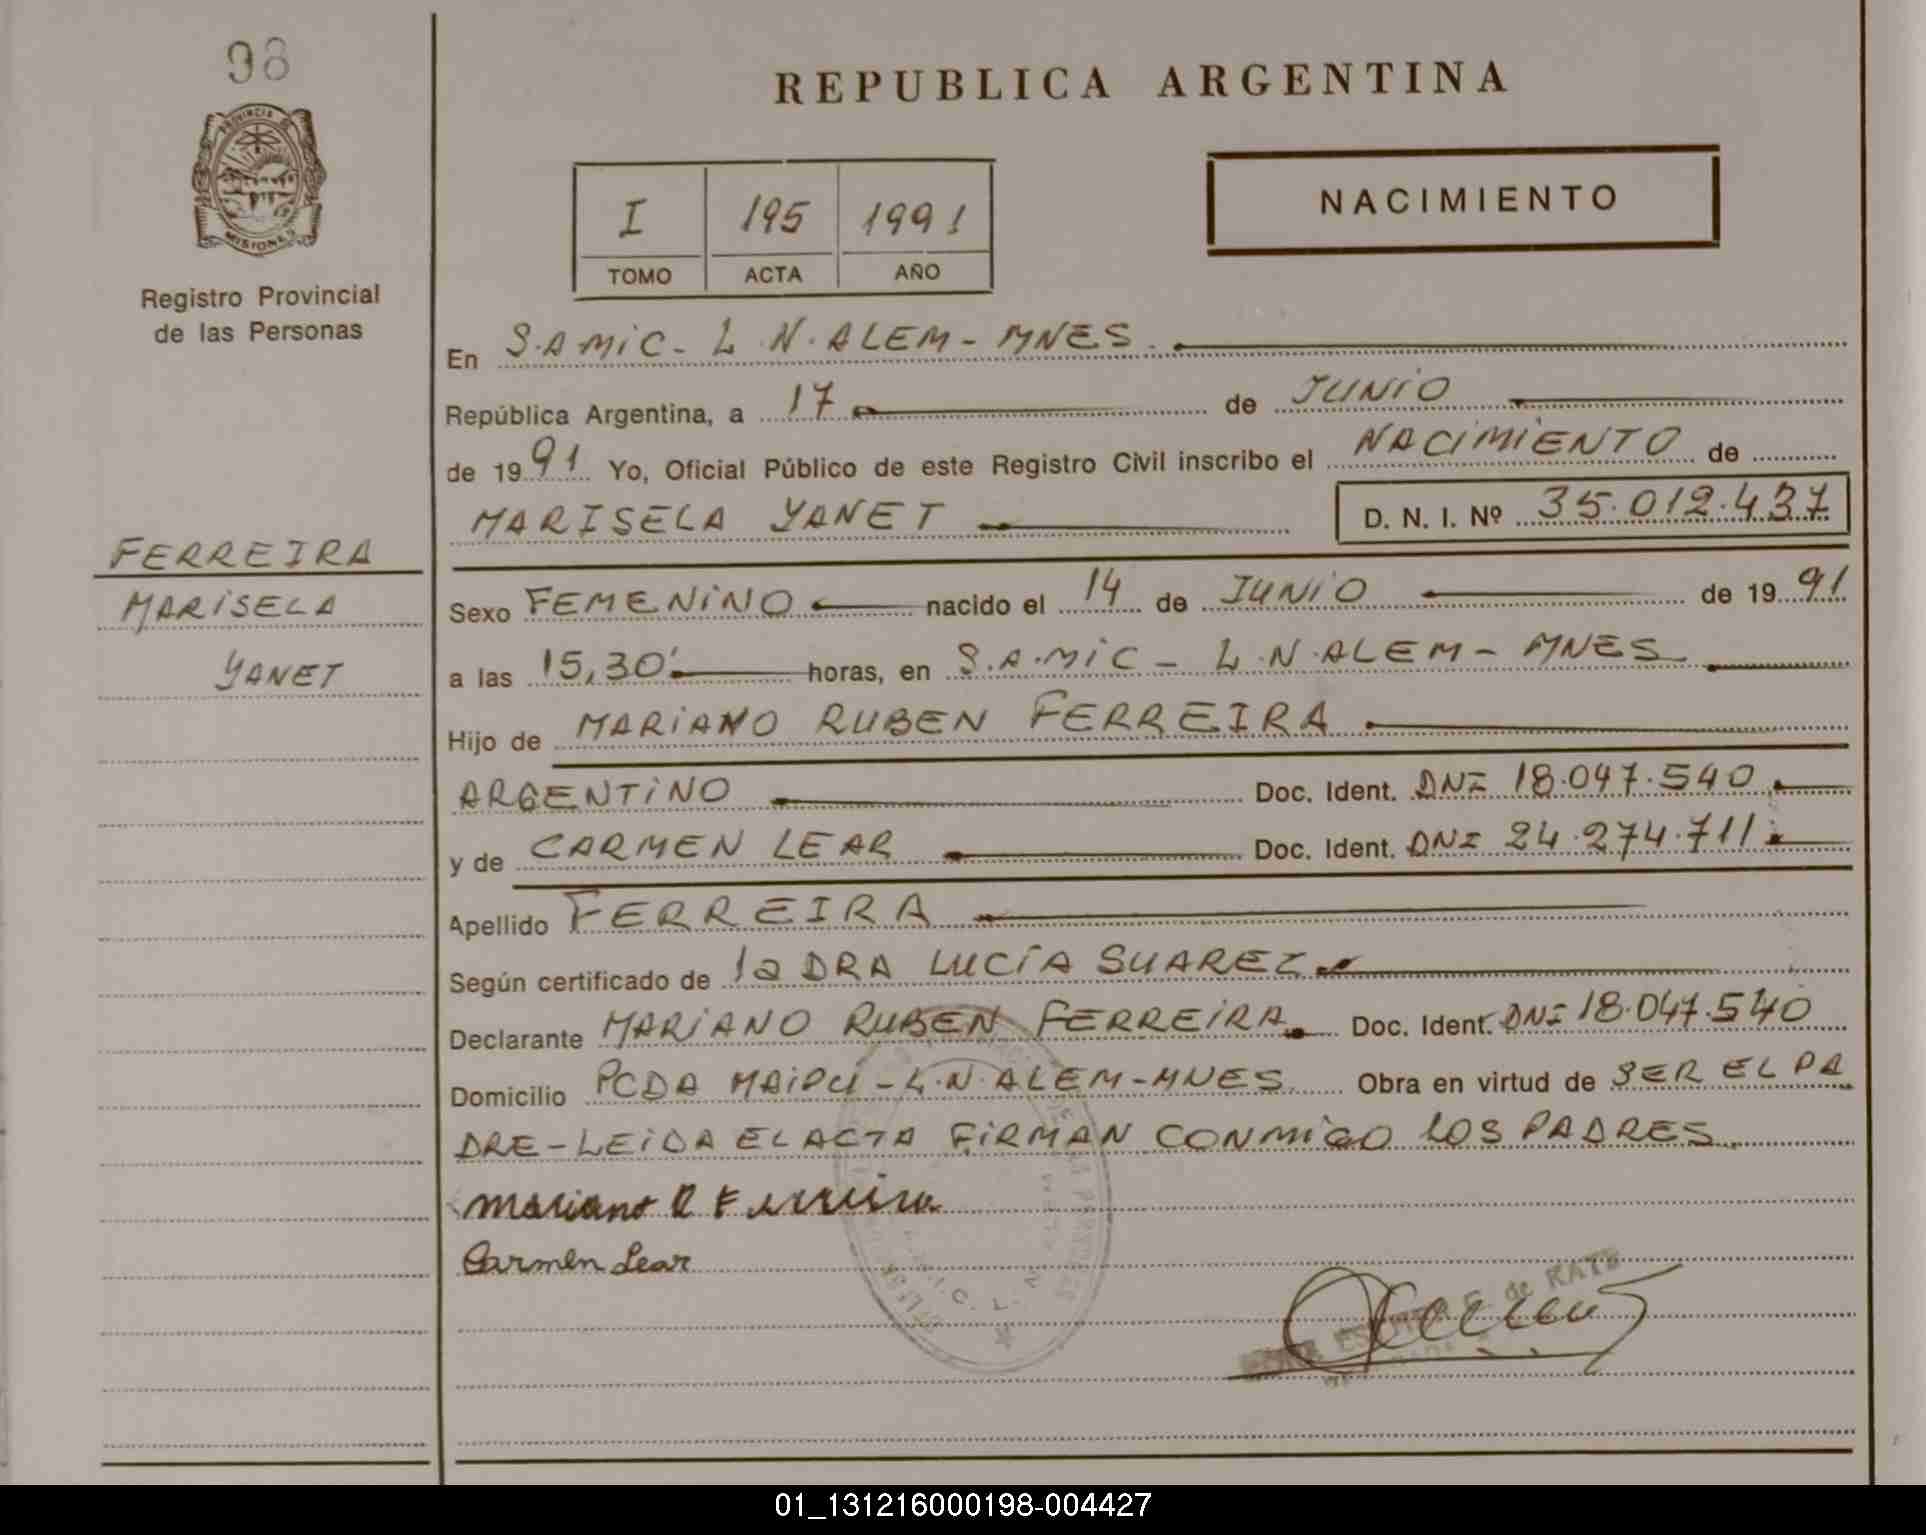 98
PROVINCIA DE
MISIONES
Registro Provincial
de las Personas
FERREIRA
MARISELA
YANET
REPUBLICA ARGENTINA
I 195 1991
TOMO ACTA AÑO
NACIMIENTO
En S.A.MIC - L.N.ALEM - MNES.
República Argentina, a 17 de JUNIO
de 1991 Yo, Oficial Público de este Registro Civil inscribo el NACIMIENTO de
MARISELA YANET D. N. I. Nº 35.012.437
Sexo FEMENINO nacido el 14 de JUNIO de 1991
a las 15,30' horas, en S.A.MIC - L.N.ALEM - MNES
Hijo de MARIANO RUBEN FERREIRA
ARGENTINO Doc. Ident. DNI 18.047.540
y de CARMEN LEAR Doc. Ident. DNI 24.274.711
Apellido FERREIRA
Según certificado de la DRA LUCÍA SUAREZ
Declarante MARIANO RUBEN FERREIRA Doc. Ident. DNI 18.047.540
Domicilio PCDA MAIPÚ - L.N.ALEM - MNES Obra en virtud de SER EL PA
DRE - LEIDA EL ACTA FIRMAN CONMIGO LOS PADRES
Mariano R Ferreira
Carmen Lear
de KATZ
01_131216000198-004427